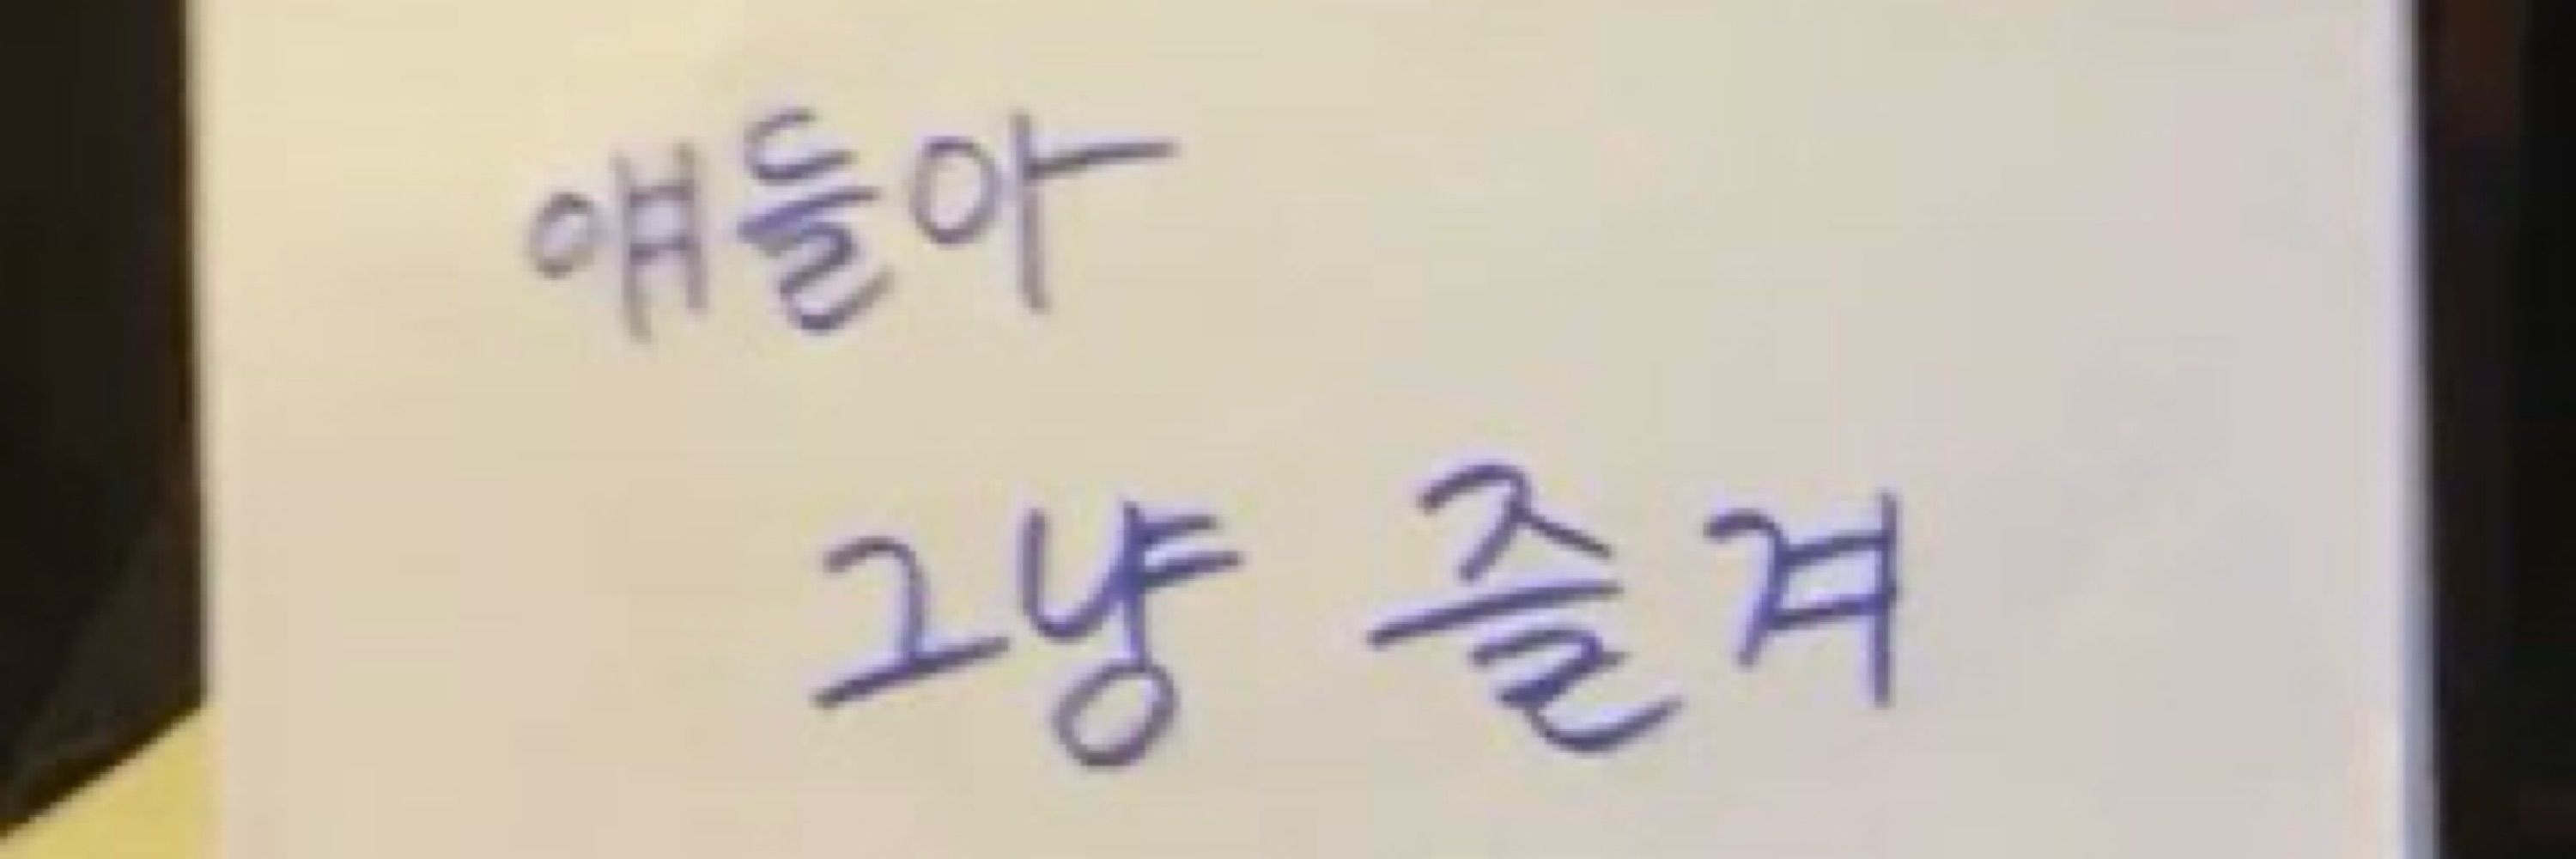 얘들아
그냥 즐겨